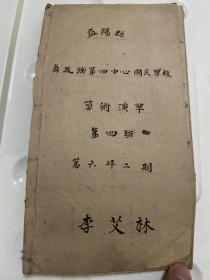 益陽縣
舞鳳鄉第四中心國民學校
算術演草
第四班
第六年二期
李艾林